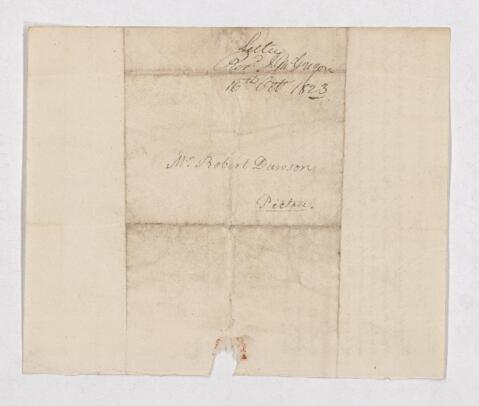 Letter
Revd. J. McGregor
16th Octr 1823.
Mr. Robert Dawson,
Pictou.